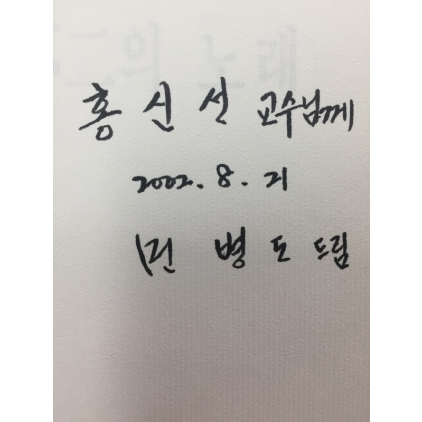 홍신선 교수님께
2002. 8. 21
민병도 드림